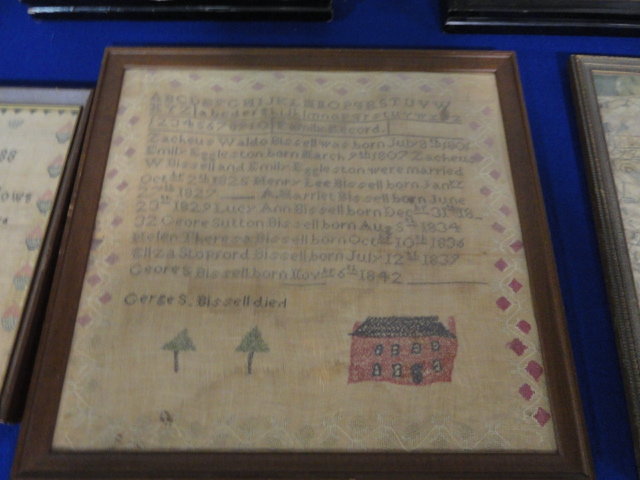 ABCDEFGHIJKLMNOPQRSTUVW
XYZ abcdefghijklmnopqrstuvwx
12345678910 Family Record.
Zacheus Waldo Bissell was born July 8th 1801
Emily Eggleston born March 9th 1807 Zacheus
W Bissell and Emily Eggleston were married
Oct 5th 1825 Henry Lee Bissell born
27th 1827 A Harriet Bissell born June
20th 1829 Lucy Ann Bissell born Dec 31st 18
32 Geore Sutton Bissell born Aug 5th 1834
Helen Theresa Bissell born Oct 10th 1836
Eliza Stopford Bissell born July 12th 1837
Geore S Bissell born Nov 6th 1842
Gerge S. Bissell died